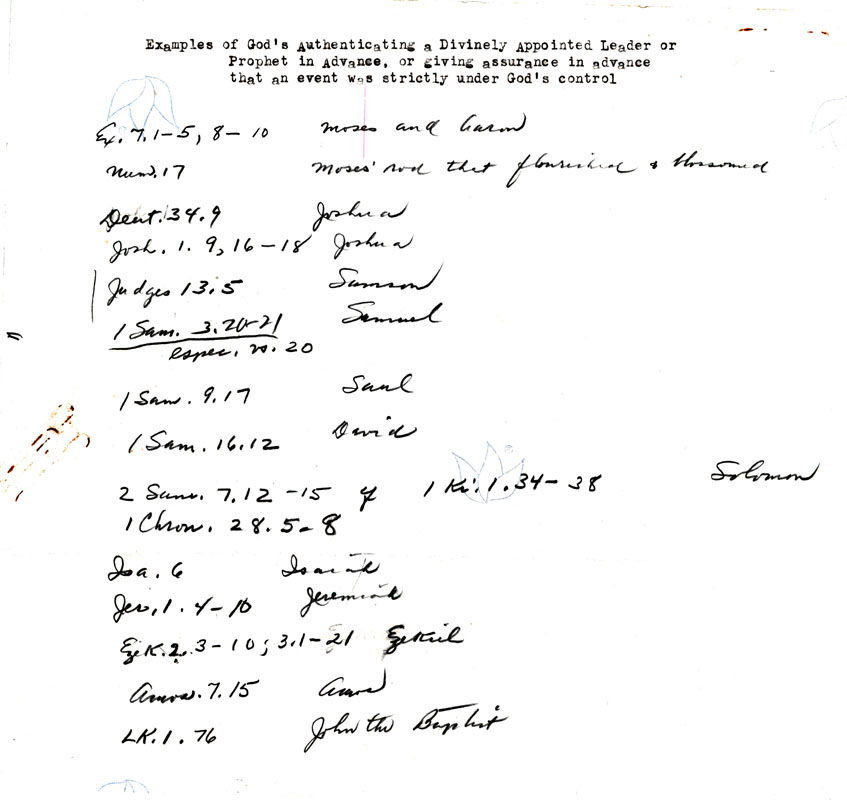 Examples of God's Authenticating a Divinely Appointed Leader or
Prophet in Advance, or giving assurance in advance
that an event was strictly under God's control
Ex. 7.1-5, 8-10 Moses and Aaron
Num. 17 Moses' rod that flourished & blossomed
Deut. 34.9 Joshua
Josh. 1. 9, 16-18 Joshua
Judges 13.5 Samson
1 Sam. 3.20-21 Samuel
espec. vs. 20
1 Sam. 9.17 Saul
1 Sam. 16.12 David
2 Sam. 7.12-15 cf 1 Ki. 1.34-38 Solomon
1 Chron. 28.5-8
Isa. 6 Isaiah
Jer. 1. 4-10 Jeremiah
Ezek. 2.3-10; 3.1-21 Ezekiel
Amos. 7.15 Amos
LK. 1. 76 John the Baptist